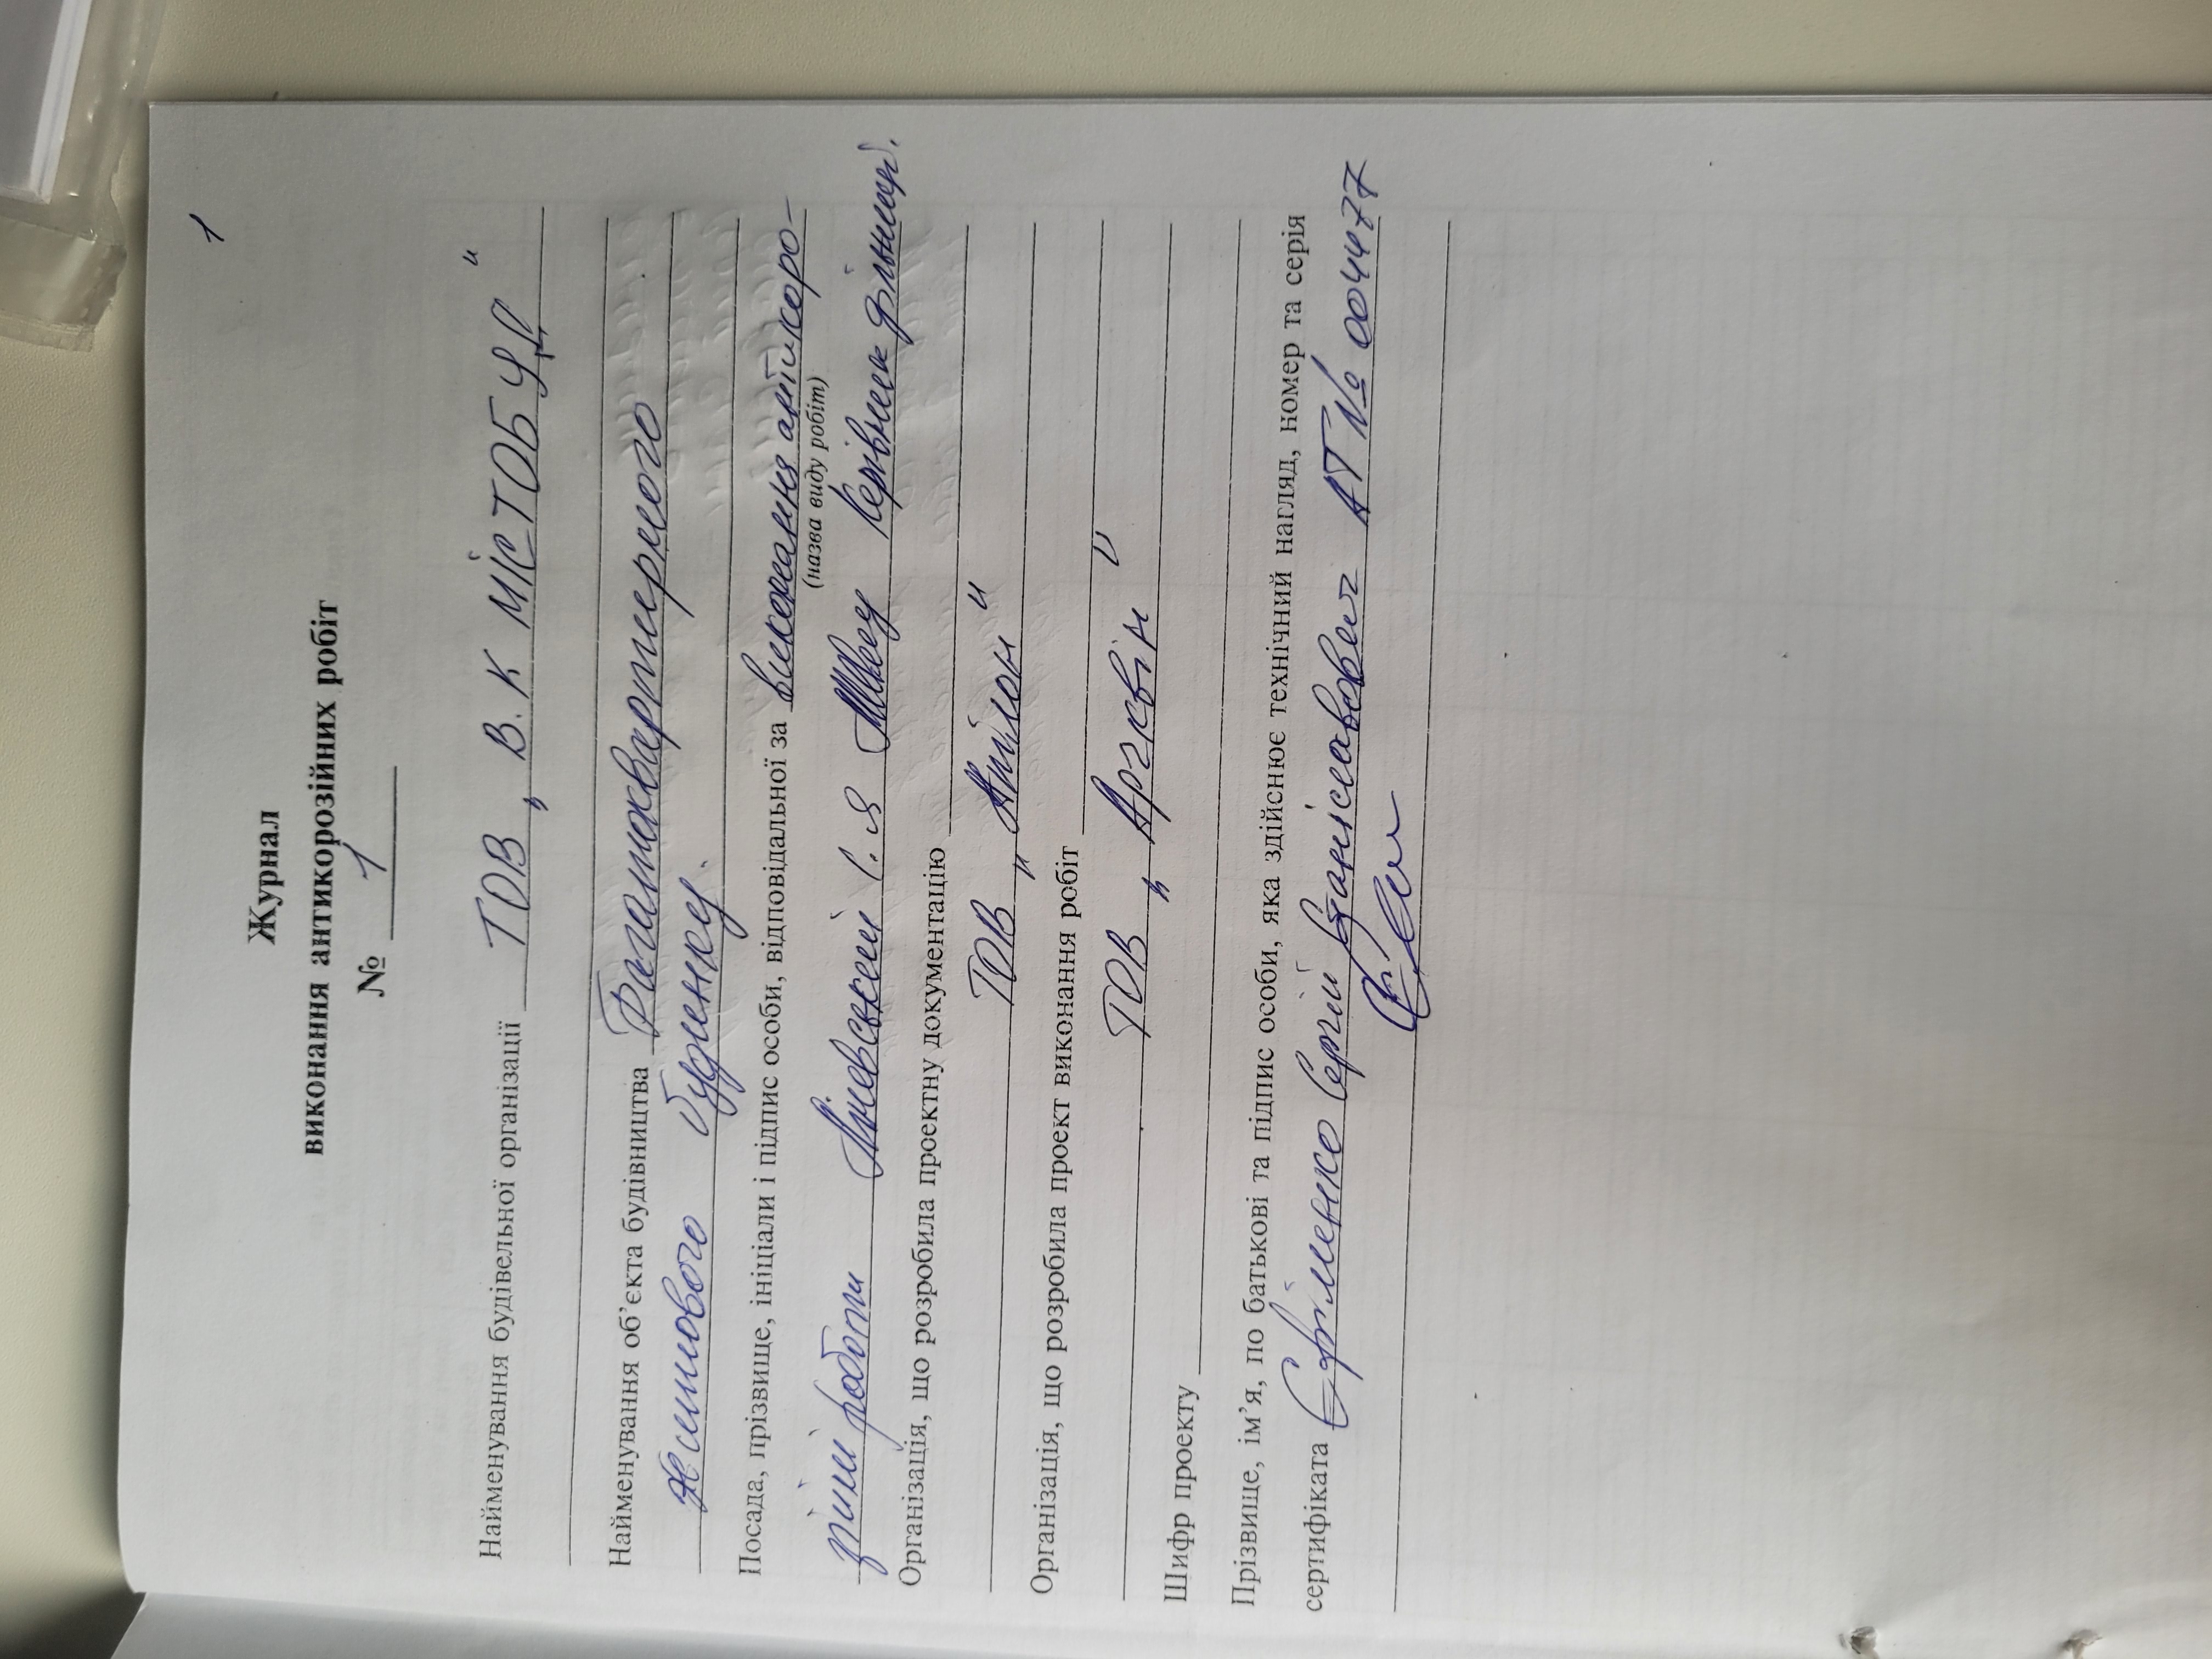 1
Журнал
виконання антикорозійних робіт
№ 1
Найменування будівельної організації ТОВ „В.К МІСТОБУД"
Найменування об'єкта будівництва Багатоквартирного
житлового будинку.
Посада, прізвище, ініціали і підпис особи, відповідальної за виконання антикоро-
(назва виду робіт)
зійні роботи Яневський С.Я керівник дільниці.
Організація, що розробила проектну документацію
ТОВ „ "
Організація, що розробила проект виконання робіт
ТОВ „Арквін"
Шифр проекту
Прізвище, ім'я, по батькові та підпис особи, яка здійснює технічний нагляд, номер та серія
сертифіката Єфіменко Сергій Станіславович АТ № 004477